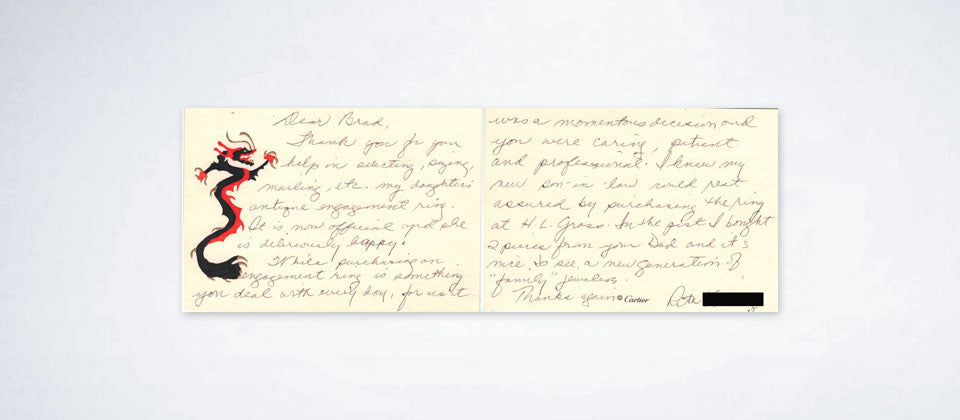 Dear Brad,
Thank you for your
help in selecting, sizing,
mailing, etc. my daughter's
antique engagement ring.
It is now official and she
is deliriously happy!
While purchasing an
engagement ring is something
you deal with every day, for us it
was a momentous decision and
you were caring, patient
and professional. I knew my
new son-in-law could rest
assured by purchasing the ring
at H.L. Gross. In the past I bought
2 pieces from your Dad and it's
nice to see a new generation of
"family" jewelers.
Thanks again © Cartier